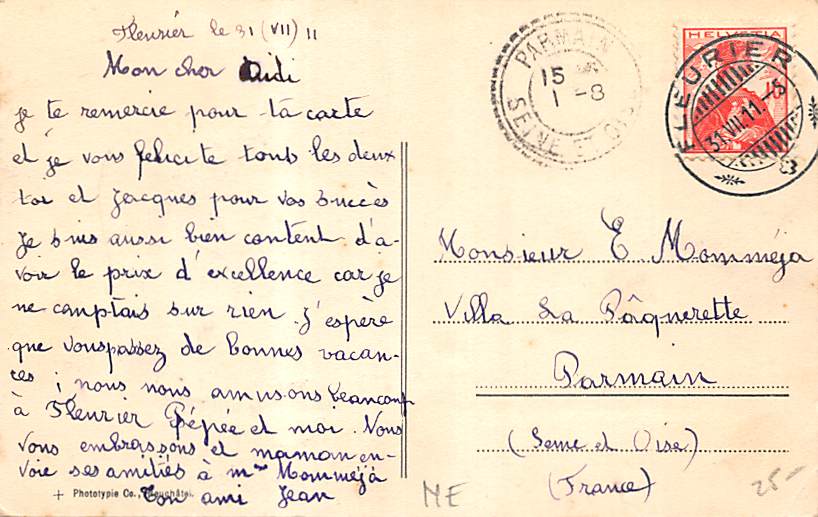 Fleurier le 31 (VII) 11
Mon cher Didi
je te remercie pour ta carte
et je vous felicite touts les deux
toi et Jacques pour vos succès
Je suis aussi bien content d'a-
voir le prix d'excellence car je
ne comptais sur rien. J'espère
que vous passez de bonnes vacan-
ces ; nous nous amusons beaucoup
à Fleurier Pépée et moi. Nous
vous embrassons et maman en-
voie ses amitiés à Mme Momméja
Ton ami Jean
+ Phototypie Co., Neuchâtel
PARMAIN
15
1 -8
SEINE ET OISE
HELVETIA
FLEURIER
31.VII.11.-5
Monsieur E Momméja
Villa La Pâquerette
Parmain
(Seine et Oise)
(France)
ME
25-